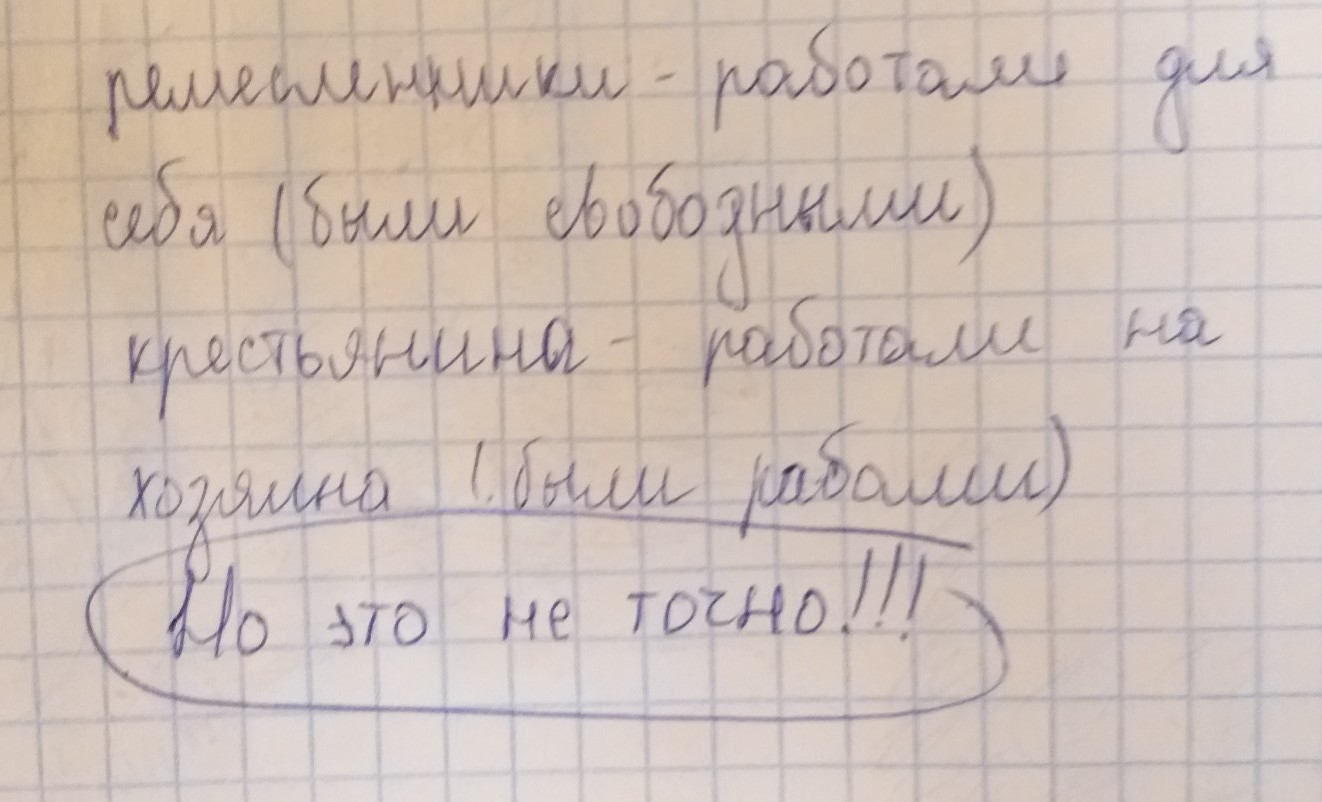 ремесленники - работали для
себя (были свободными)
крестьянина - работали на
хозяина (были рабами)
Но это не точно!!!